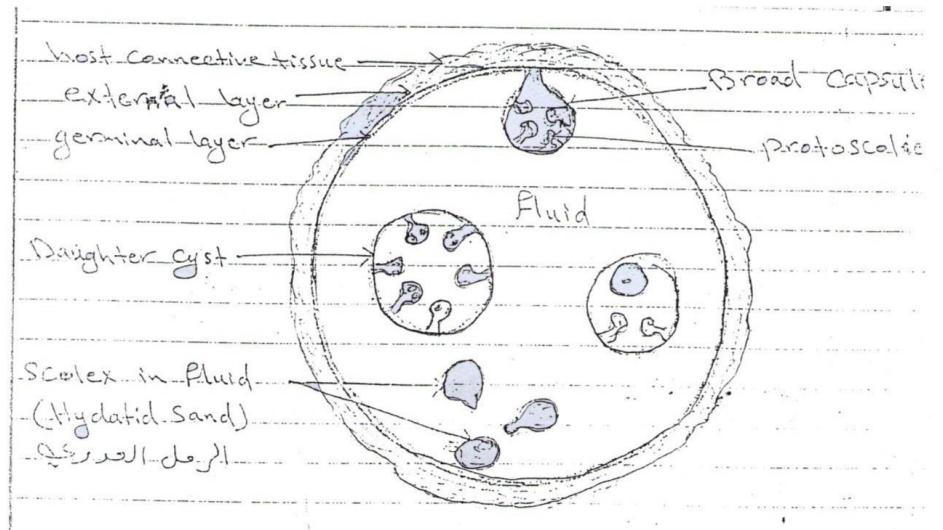 host connective tissue
external layer
germinal layer
Broad Capsul
protoscolic
Fluid
Daughter cyst
Scolex in fluid
(Hydatid Sand)
الرمل العدري